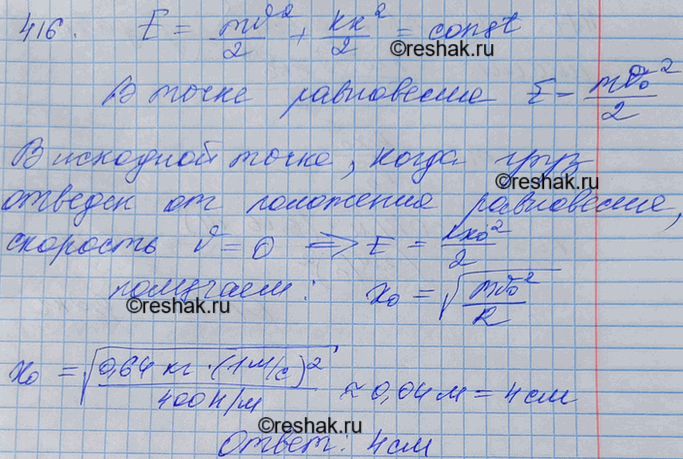 416. E = mv²/2 + kx²/2 = const
©reshak.ru
В точке равновесие E = mv₀²/2
В исходной точке, когда груз
©reshak.ru
отведен от положения равновесие,
скорость v = 0 => E = kx₀²/2
получаем: x₀ = √(mv₀²/k)
©reshak.ru
x₀ = √(0,64 кг · (1 м/с)²/400 Н/м) ≈ 0,04 м = 4 см
©reshak.ru
©reshak.ru
Ответ: 4 см